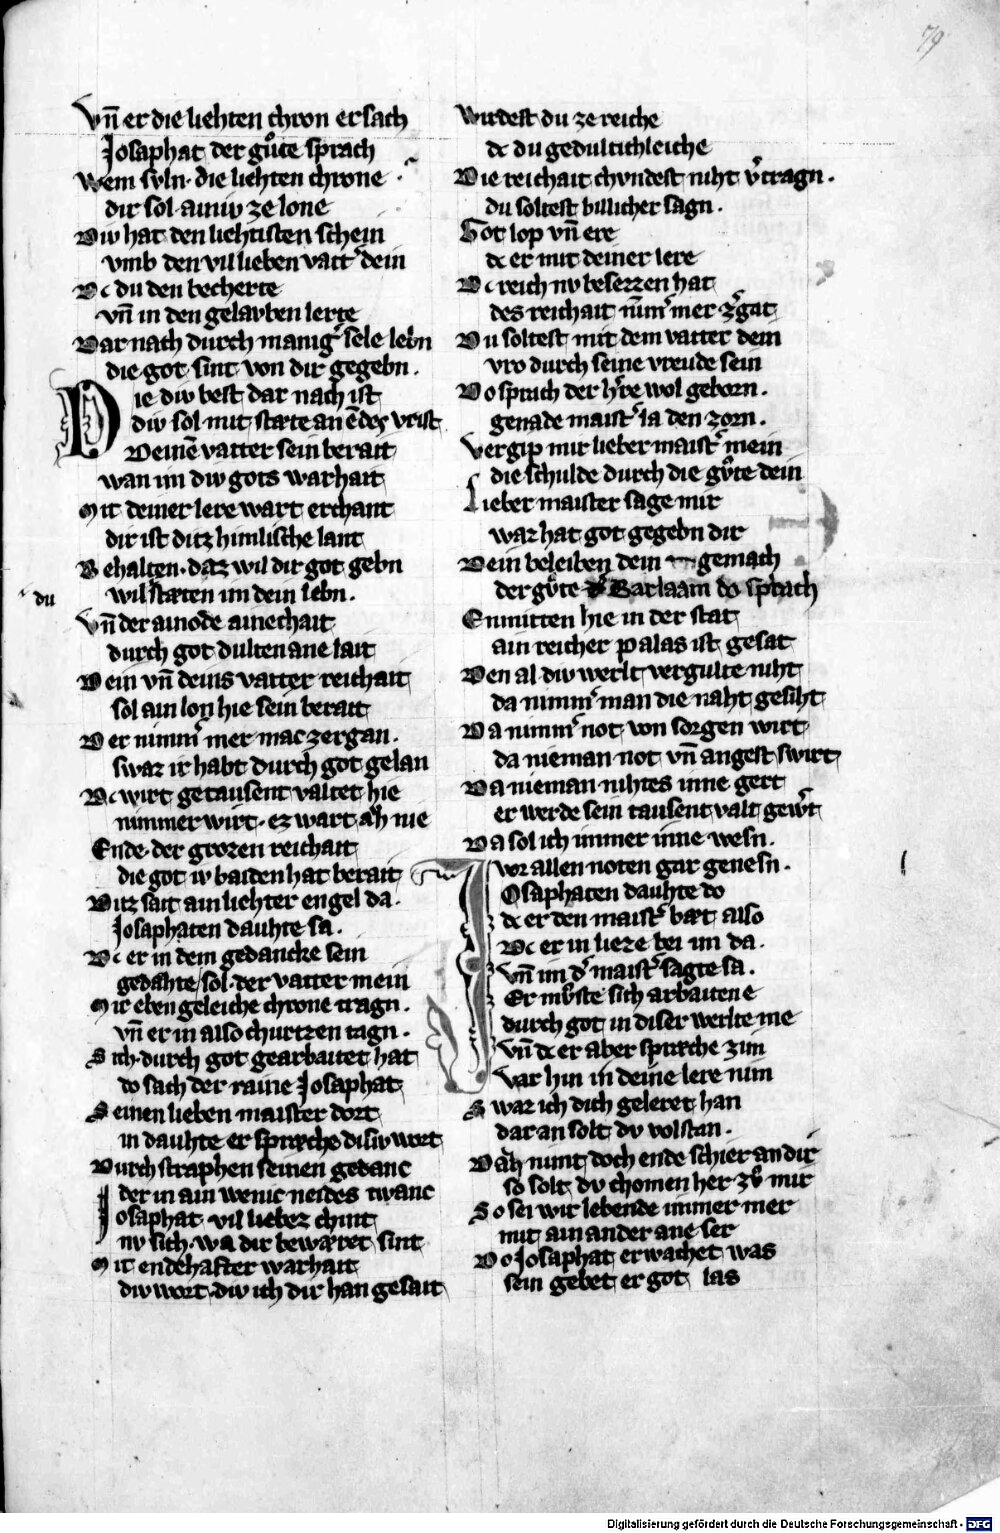 79
Vn̄ er die liehten chron ersach
Josaphat der gůte sprach
Wem svln · die liehten chrone
dir sol ainiv ze lone
Div hat den liehtisten schein
vmb den vil lieben vatt̾ dein
Dc du den becherte
vn̄ in den gelavben lerte
Dar nach durch manig̾ sele lebn
die got sint von dir gegebn .
Die div best dar nach ist
div sol mit stæte an ēdes vrist
Deinē vatter sein berait
wan im div gots warhait
Mit deiner lere wart erchant
dir ist ditz himlische lant
Behalten · daz wil dir got gebn
du
wil stæten im dein lebn .
Vn̄ der ainode ainechait
durch got dulten ane lait
Dein vn̄ deins vatter reichait
sol ain lon hie sein berait
Der nimm̾ mer mac zergan .
swaz ir habt durch got gelan
Dc wirt getausent valtet hie
nimmer wirt · ez wart avh nie
Ende · der grozen reichait
die got iv baiden hat berait
Ditz sait ain liehter engel da .
Josaphaten dauhte sa .
Dc er in dem gedancke sein
gedahte / sol · der vatter mein
Mir eben geleiche chrone tragn .
vn̄ er in also churtzen tagn .
Sich · durch got gearbaitet hat
do sach der raine Josaphat
Seinen lieben maister dort
in dauhte er spræche disiv wort
Durch straphen seinen gedanc
der in ain wenic neides twanc
Josaphat vil liebez chint
nv sich · wa dir bewæret sint
Mit endehafter warhait
div wort · div ich dir han gesait
Wirdest du ze reiche
dc du gedultichleiche
Die reichait chvndest niht v̾tragn .
du soltest billicher sagn .
Got lop vn̄ ere
dc er mit deiner lere
Dc reich nv besezzen hat
des reichait nim̄ mer z̾gat
Du soltest mit dem vatter dem
vro durch seine vreude sein
Do sprach der h̾re wol geborn .
genade maist̾ la den zorn .
Vergip mir lieber maist̾ mein
die schulde durch die gvͤte dein
Lieber maister sage mir
waz hat got gegebn dir
Dein beleiben dein gemach
der gvͤte Barlaam do sprach
Enmitten hie in der stat
ain reicher palas ist gesat
Den al div werlt vergulte niht
da nimm̾ man die naht gesiht
Da nimm̾ not von sorgen wirt
da nieman not vn̄ angest swirt
Da nieman nihtes inne gert
er werde sein tausent valt gew̾t
Da sol ich immer inne wesn .
vor allen noten gar genesn .
Josaphaten dauhte do
dc er den maist̾ bæt also
Dc er in lieze bei im da .
vn̄ im d̾ maist̾ sagte sa .
Er mvͤste sich arbaiten e
durch got in diser werlte me
Vn̄ dc er aber spræche zim
var hin in deine lere nim
Swaz ich dich geleret han
dar an solt dv volstan .
Dah nimt doch ende schier an dir
so solt dv chomen her zvͦ mir
So sei wir lebende immer mer
mit ain ander ane ser
Do Josaphat erwachet was
sein gebet er got las
Digitalisierung gefördert durch die Deutsche Forschungsgemeinschaft - DFG